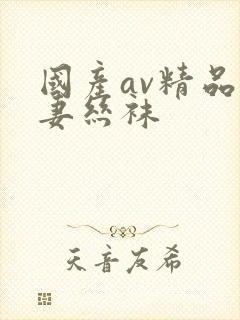 國産av精品
妻絲袜
天音友希